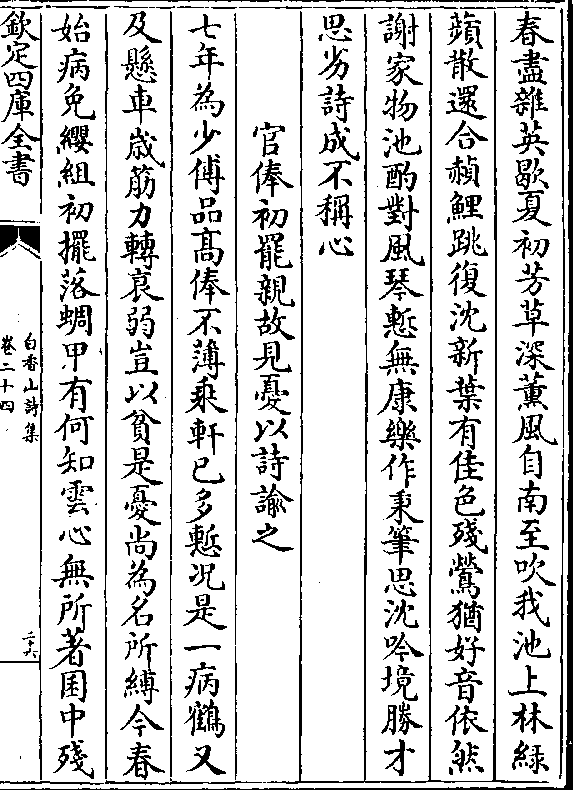 春盡雜英歇夏初芳草深薰風自南至吹我池上林綠
蘋散還合赬鯉跳復沈新葉有佳色殘鶯猶好音依然
謝家物池酌對風琴慙無康樂作秉筆思沈吟境勝才
思劣詩成不稱心
官俸初罷親故見憂以詩諭之
七年為少傅品髙俸不薄乘軒已多慙况是一病鶴又
及懸車嵗筋力轉衰弱豈以貧是憂尚為名所縛今春
始病免纓組初擺落蜩甲有何知雲心無所著囷中殘
欽定四庫全書
白香山詩集
卷二十四
二十六